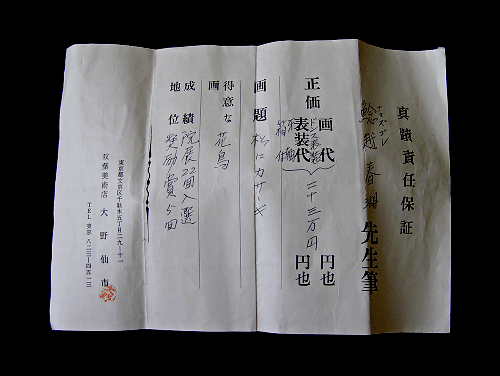 真蹟責任保証
ナマズゴシ
鯰越春湖先生筆
画代 円也
正価 二十三万円
表装代 円也
ドンス表装
箱付
画題 松にカササギ
得意な画 花鳥
成績 院展22回入選
地位 奨励賞5回
東京都文京区千駄木五丁目二九ノ十一
双葉美術店 大野仙市
TEL 東京 八二三―四五一三